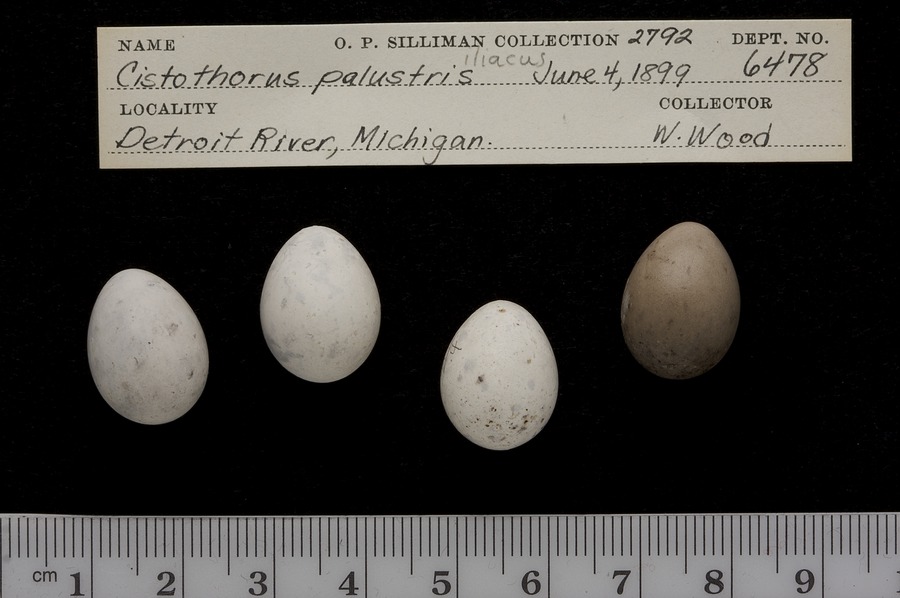 NAME O. P. SILLIMAN COLLECTION 2792 DEPT. NO.
iliacus
Cistothorus palustris June 4, 1899 6478
LOCALITY COLLECTOR
Detroit River, Michigan. W. Wood
cm 1 2 3 4 5 6 7 8 9